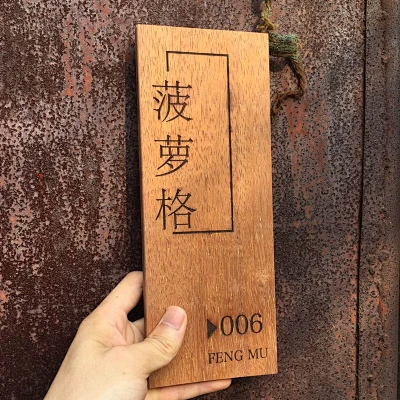 菠萝格
▶006
FENG MU